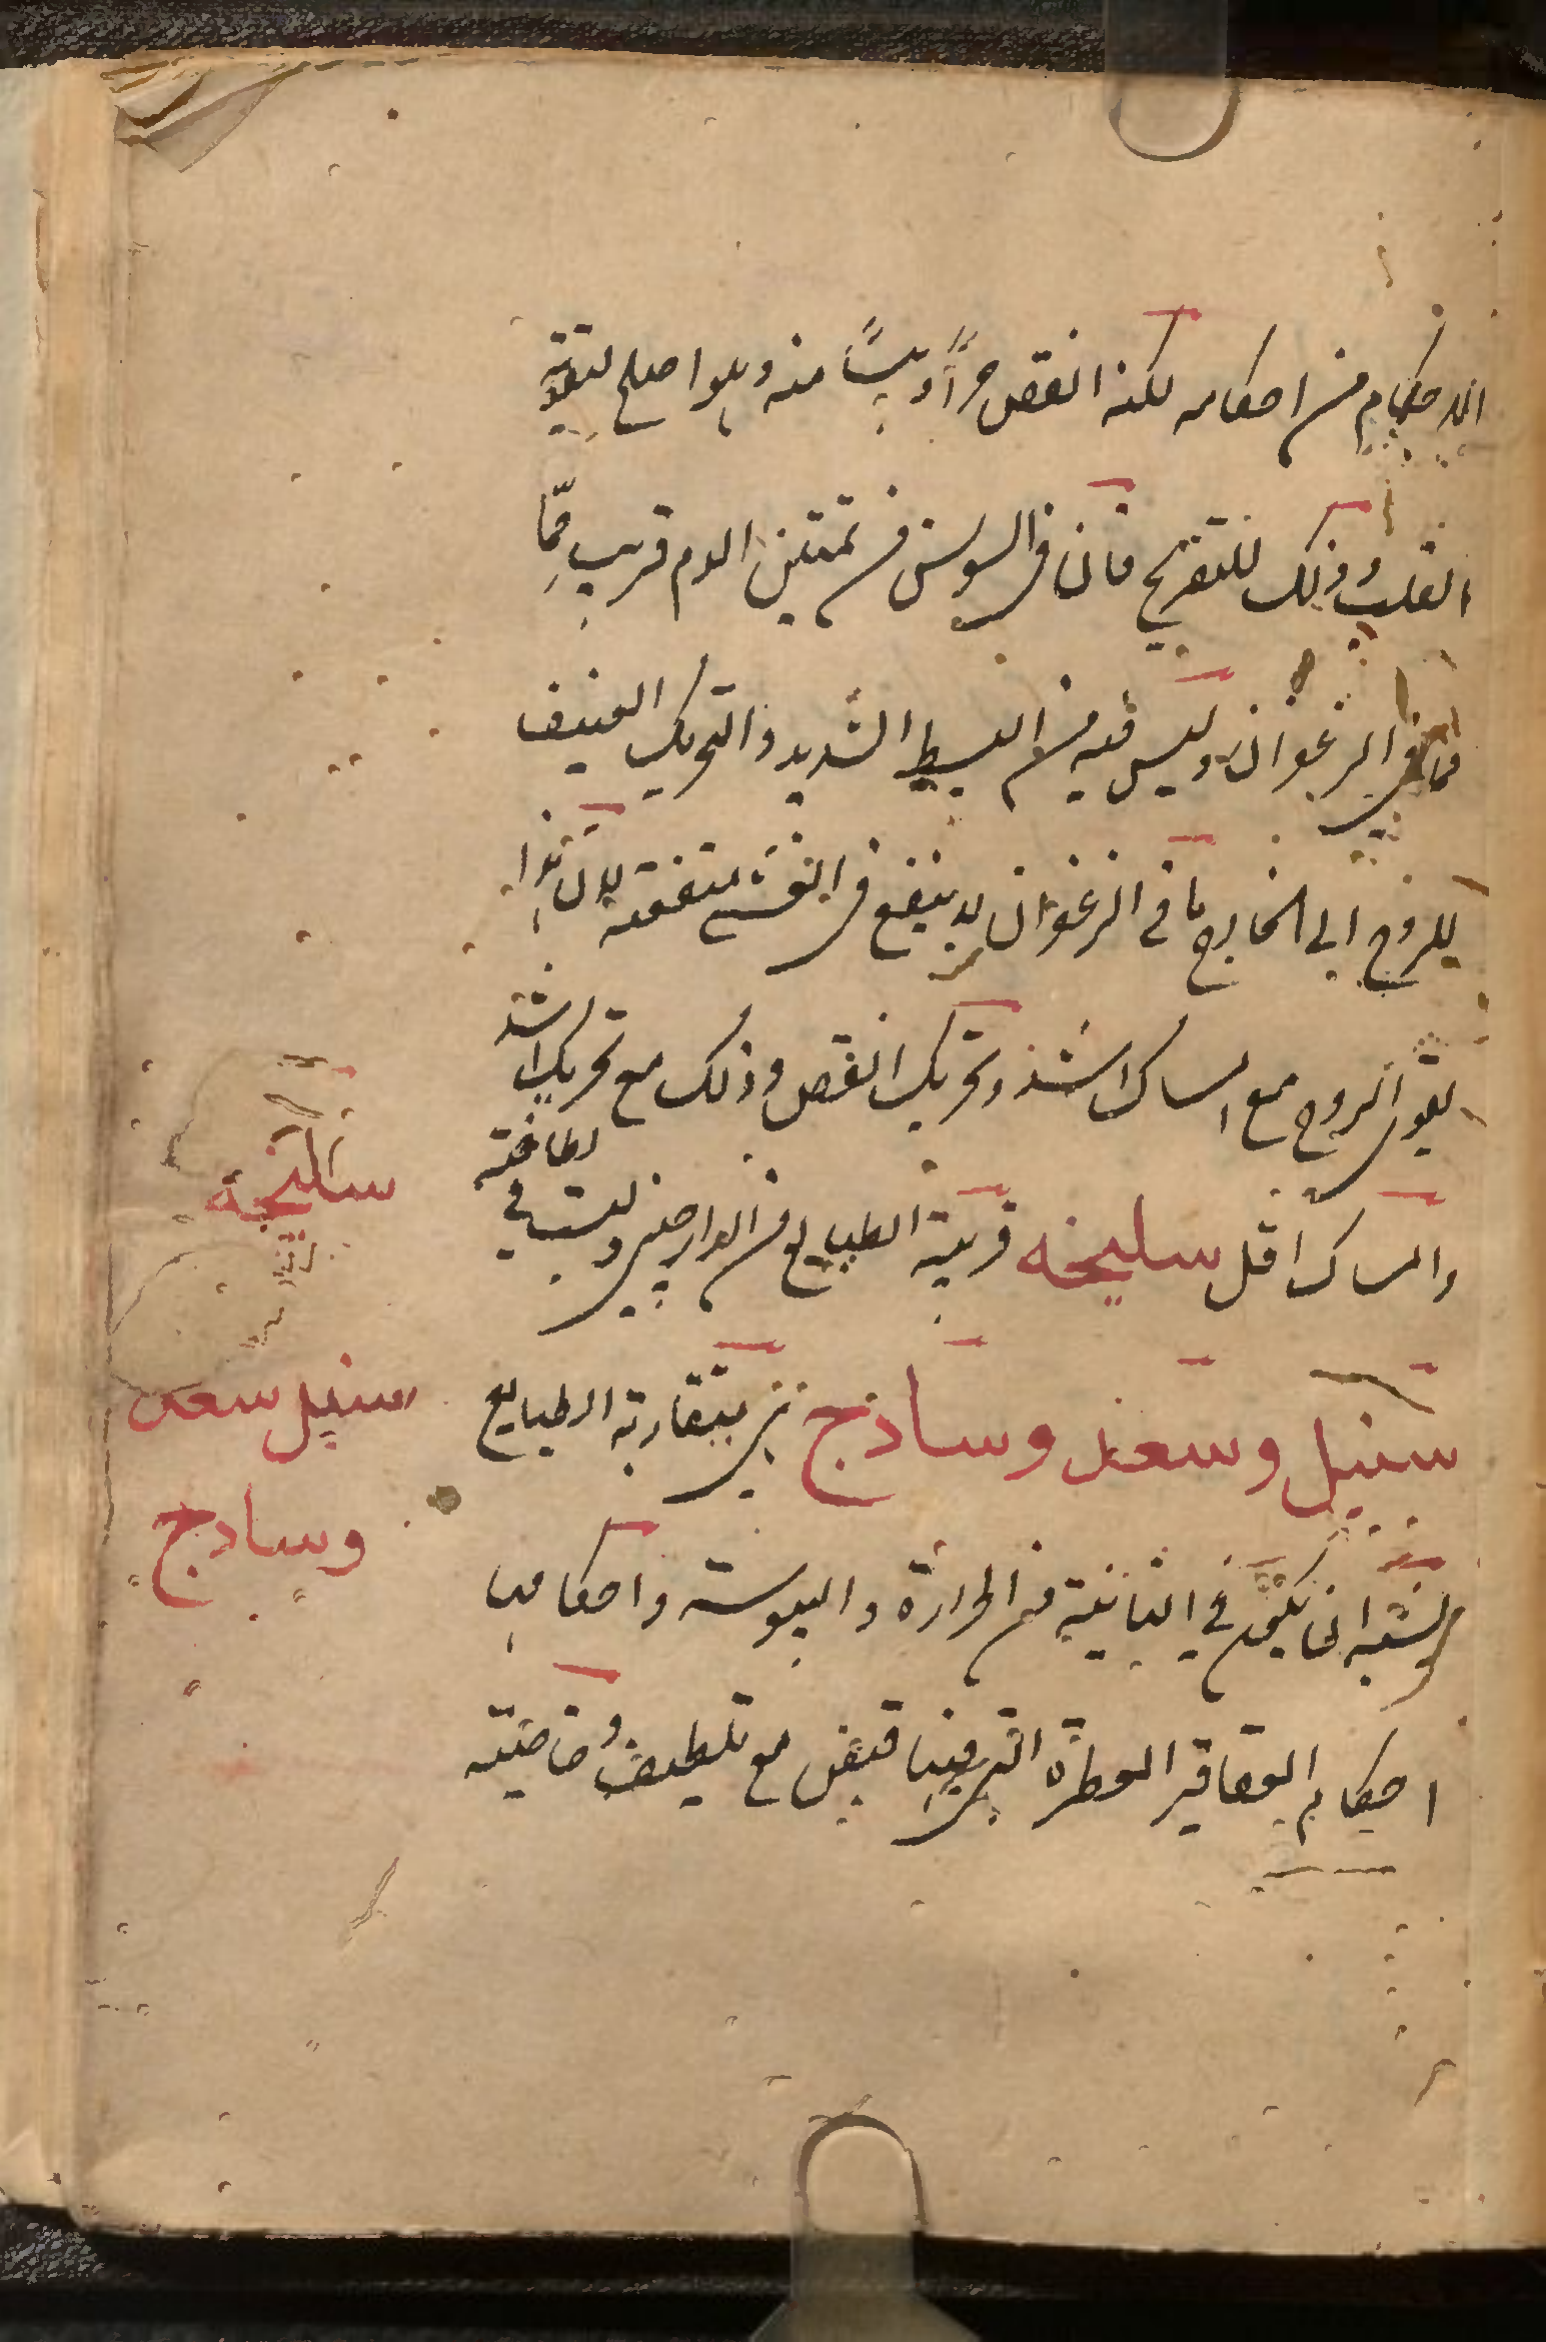 الاحكام من احكامه لكنه انقص حراً ويبساً منه وهو اصلح لتقوية
القلب وذلك للتفريح فان في السوسن من تمتين الدم قريب مِمّا
مما في الزعفران وليس فيه من البسط الشديد والتحريك العنيف
للروح الى الخارج ما في الزعفران ينفع في الغشى منفعته لان هذا
يقوى الروح مع امساك اشد وتحريك انقص وذلك مع تحريك اشد
وامساك اقل سليخه قريبة الطبايع من الدارصينى وليست في لطافته
سنبل وسعد وساذج هي متقاربة الطبايع
في الثانية من الحرارة واليبوسة واحكامها
احكام العقاقير العطرة التى فيها قبض مع تلطيف وخاصيته
سليخه
سنبل سعد
وساذج